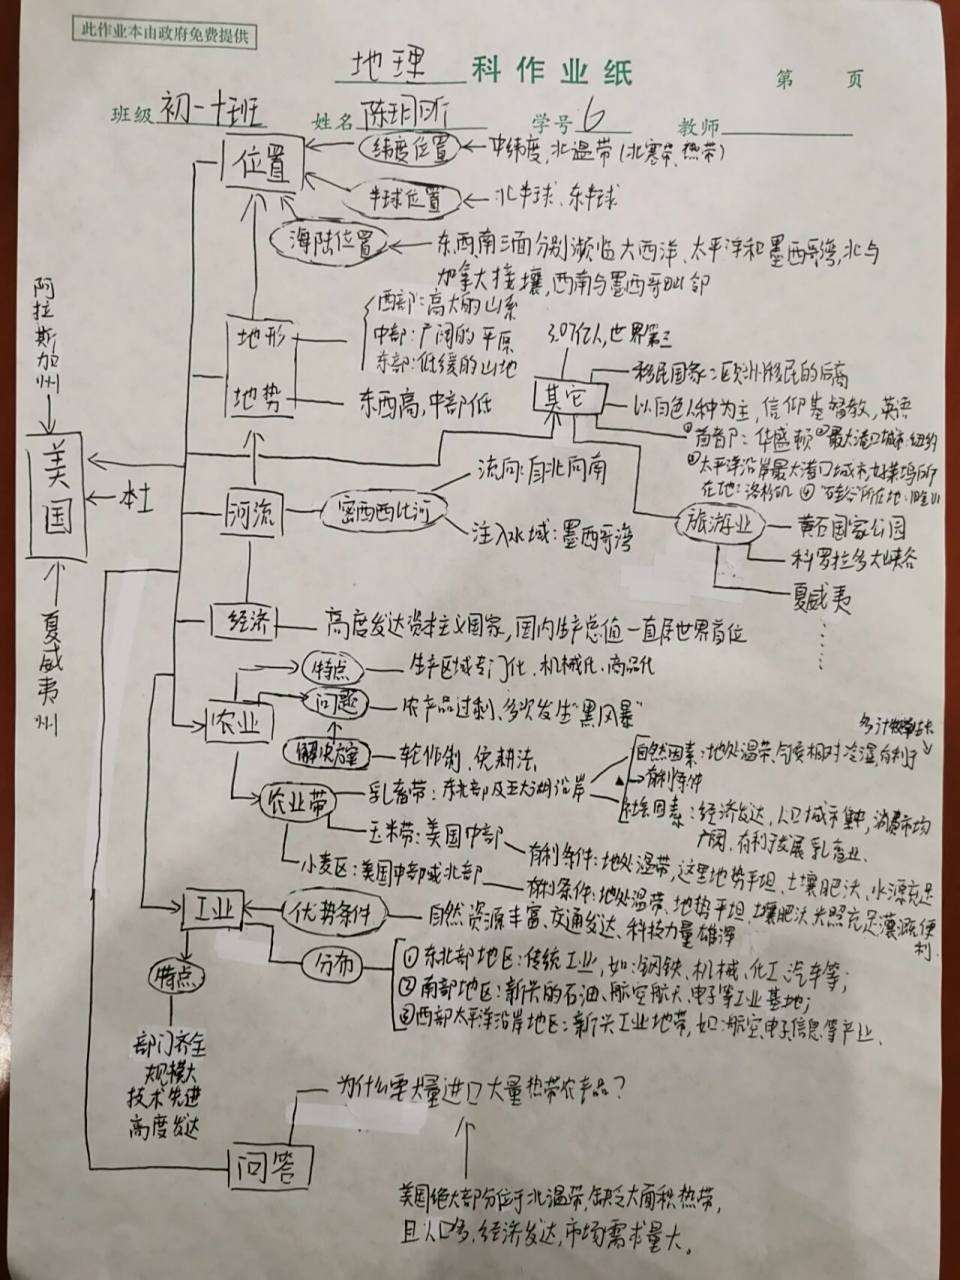 此作业本由政府免费提供
地理 科作业纸
第 页
班级 初一十班 姓名 学号 6 教师
位置
纬度位置 中纬度,北温带(北寒带、热带)
半球位置 北半球、东半球
海陆位置 东西南三面分别濒临大西洋、太平洋和墨西哥湾,北与
加拿大接壤,西南与墨西哥毗邻
阿拉斯加州
美国
本土
夏威夷州
地形
西部:高大的山系
中部:广阔的平原
东部:低缓的山地
地势
东西高,中部低
3.07亿人,世界第三
其它
移民国家:欧洲移民的后裔
以白色人种为主,信仰基督教,英语
①首都:华盛顿②最大港口城市:纽约
③太平洋沿岸最大港口城市,好莱坞所
在地:洛杉矶 ④硅谷所在地:旧金山
河流
密西西比河
流向:自北向南
注入水域:墨西哥湾
旅游业
黄石国家公园
科罗拉多大峡谷
夏威夷
……
经济 高度发达资本主义国家,国内生产总值一直居世界首位
农业
特点 生产区域专门化、机械化、商品化
问题 农产品过剩、多次发生“黑风暴”
解决方案 轮作制、休耕法
农业带
乳畜带:东北部及五大湖沿岸
自然因素:地处温带,气候相对冷湿,有利于
有利条件
社会因素:经济发达,人口城市集中,消费市场
广阔,有利于发展乳畜业、
玉米带:美国中部
有利条件:地处温带,这里地势平坦、土壤肥沃、水源充足
小麦区:美国中部或北部
有利条件:地处温带、地势平坦、土壤肥沃、光照充足灌溉便
利.
工业
优势条件 自然资源丰富、交通发达、科技力量雄厚
分布
①东北部地区:传统工业,如:钢铁、机械、化工、汽车等;
②南部地区:新兴的石油、航空航天、电子等工业基地;
③西部太平洋沿岸地区:新兴工业地带,如:航空、电子、信息等产业、
特点
部门齐全
规模大
技术先进
高度发达
问答
为什么要大量进口大量热带农产品?
美国绝大部分位于北温带,缺乏大面积热带,
且人口多、经济发达,市场需求量大。